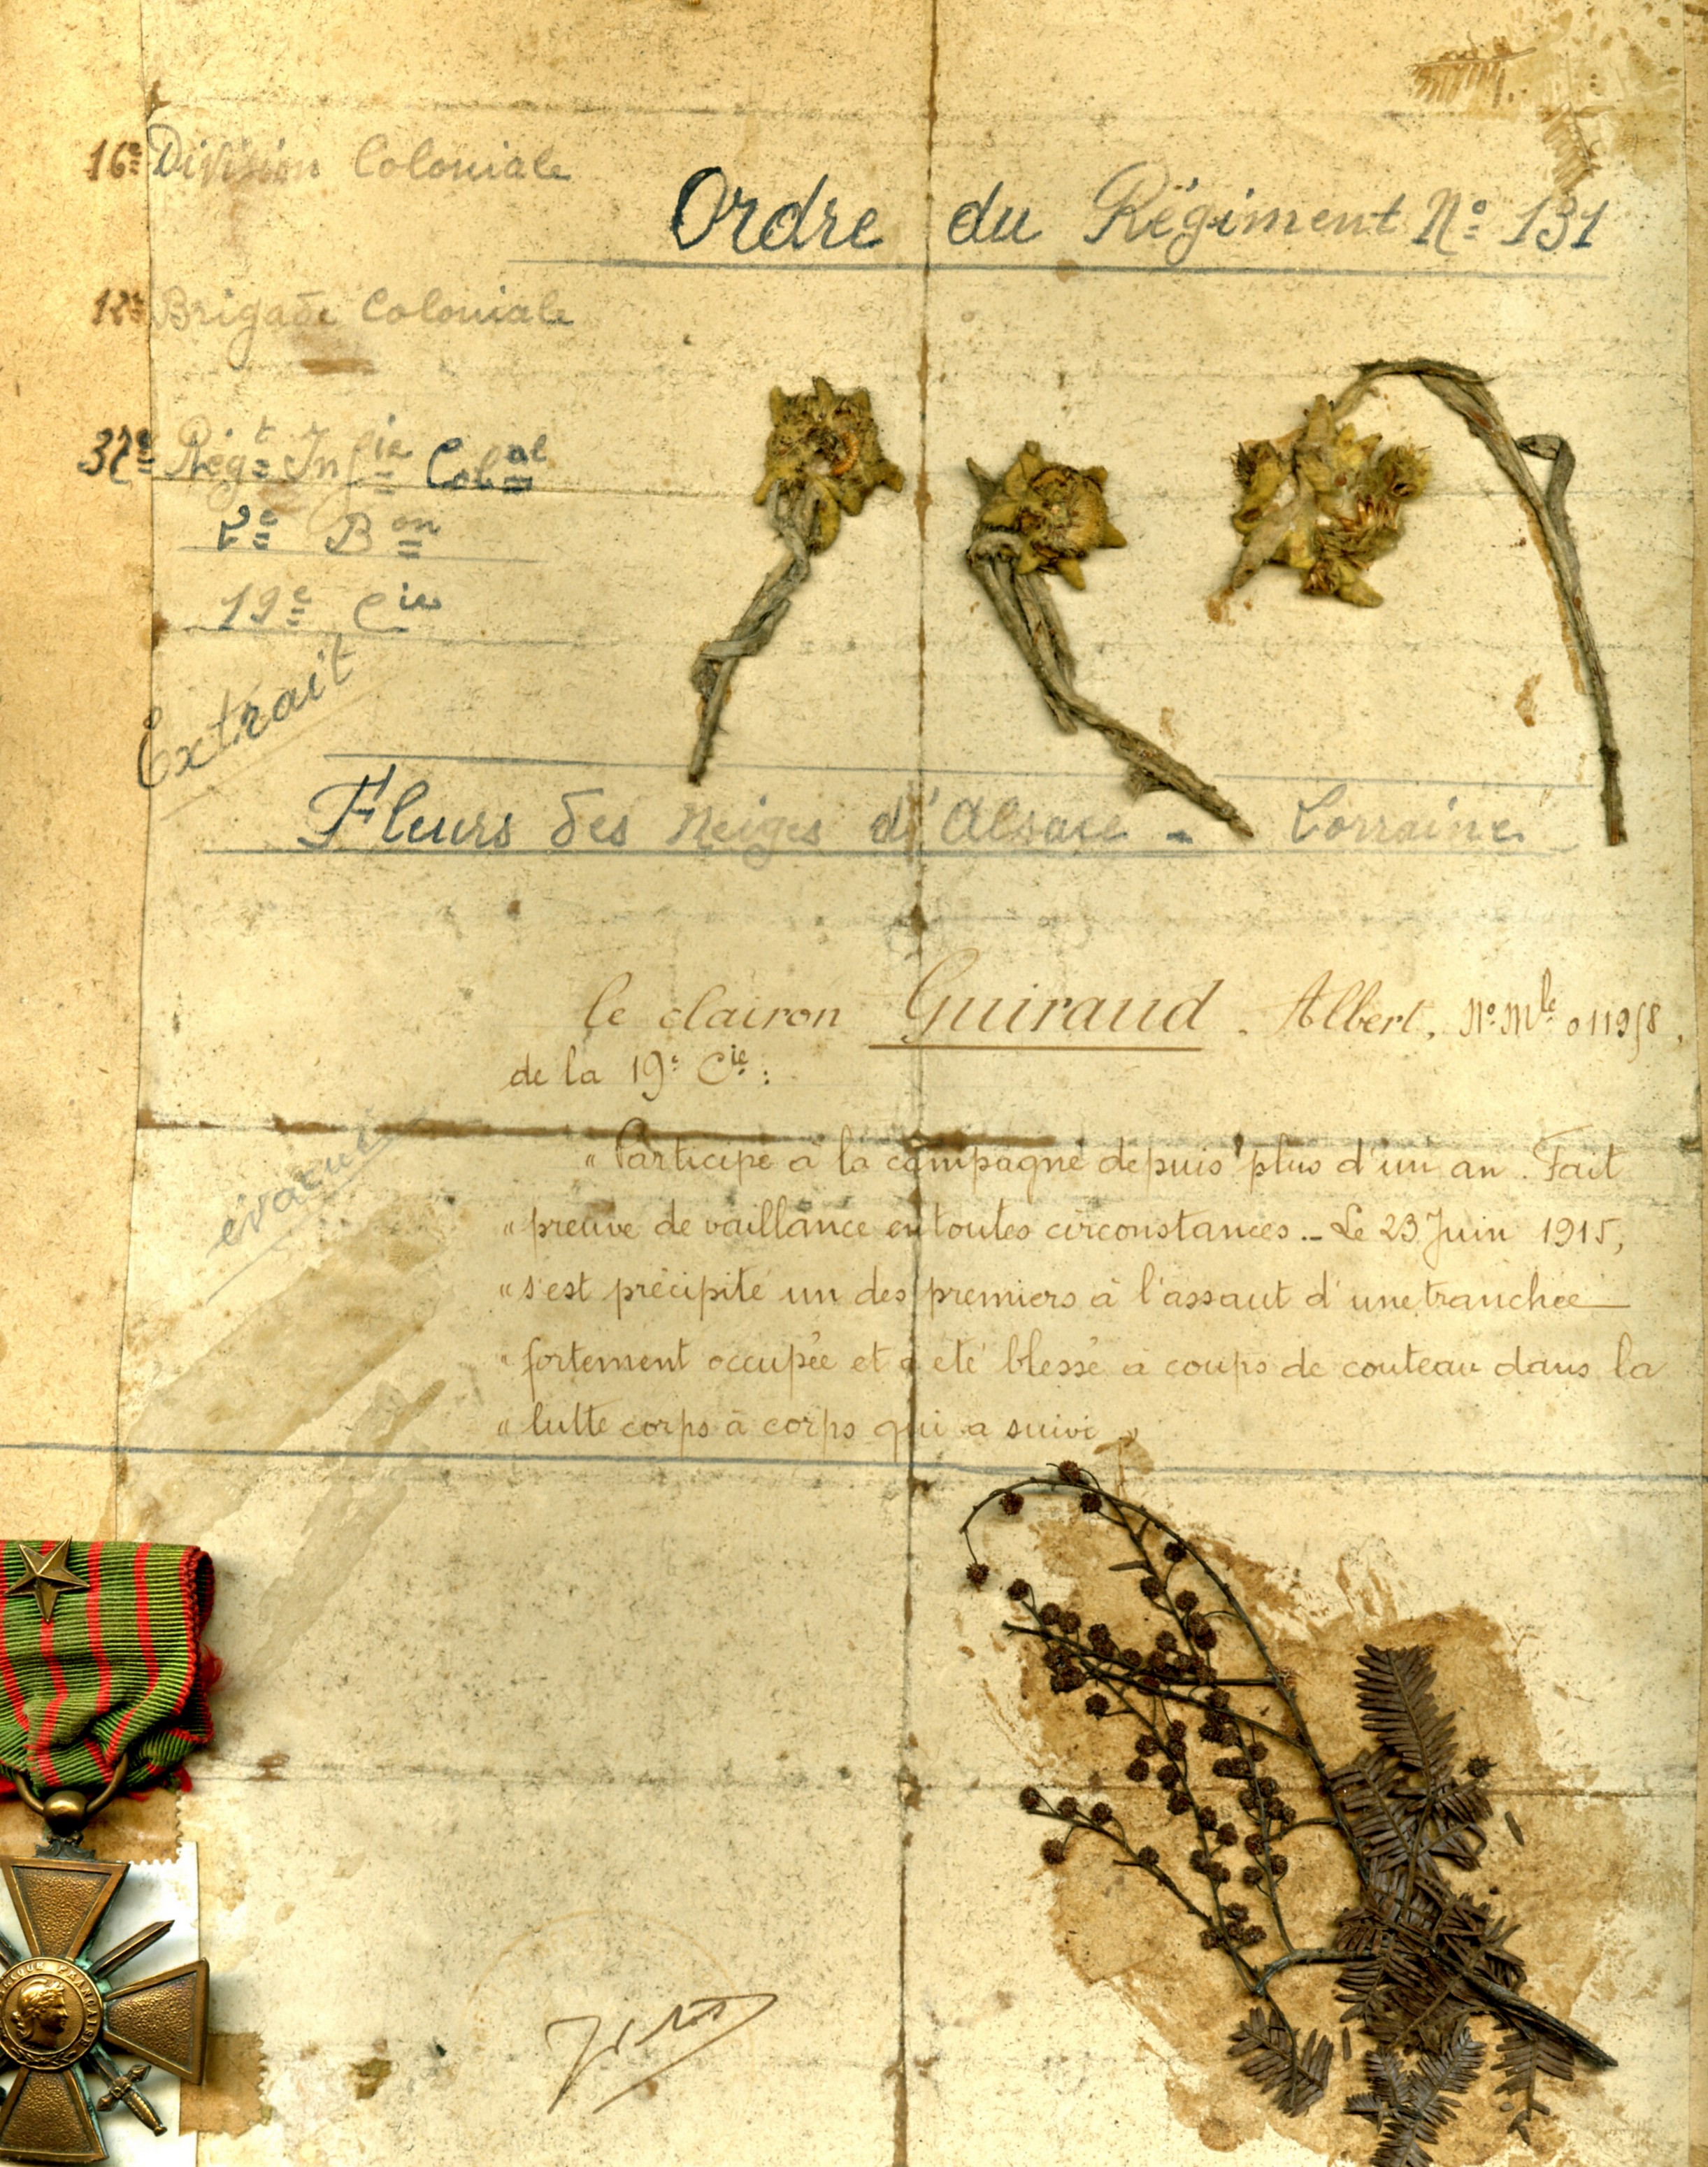 16e Division Coloniale
Ordre du Régiment No 131
12e Brigade Coloniale
37e Régt Infie Colal
2e Bon
19e Cie
Extrait
Fleurs des Neiges d'Alsace - Lorraine
Le clairon Guiraud. Albert, No Mle 011958.
de la 19e Cie :
évacué
" Participe à la campagne depuis plus d'un an. Fait
" preuve de vaillance en toutes circonstances.- Le 23 Juin 1915,
" s'est précipité un des premiers à l'assaut d'une tranchée
" fortement occupée et a été blessé à coups de couteau dans la
" lutte corps à corps qui a suivi "
FRANÇAISE